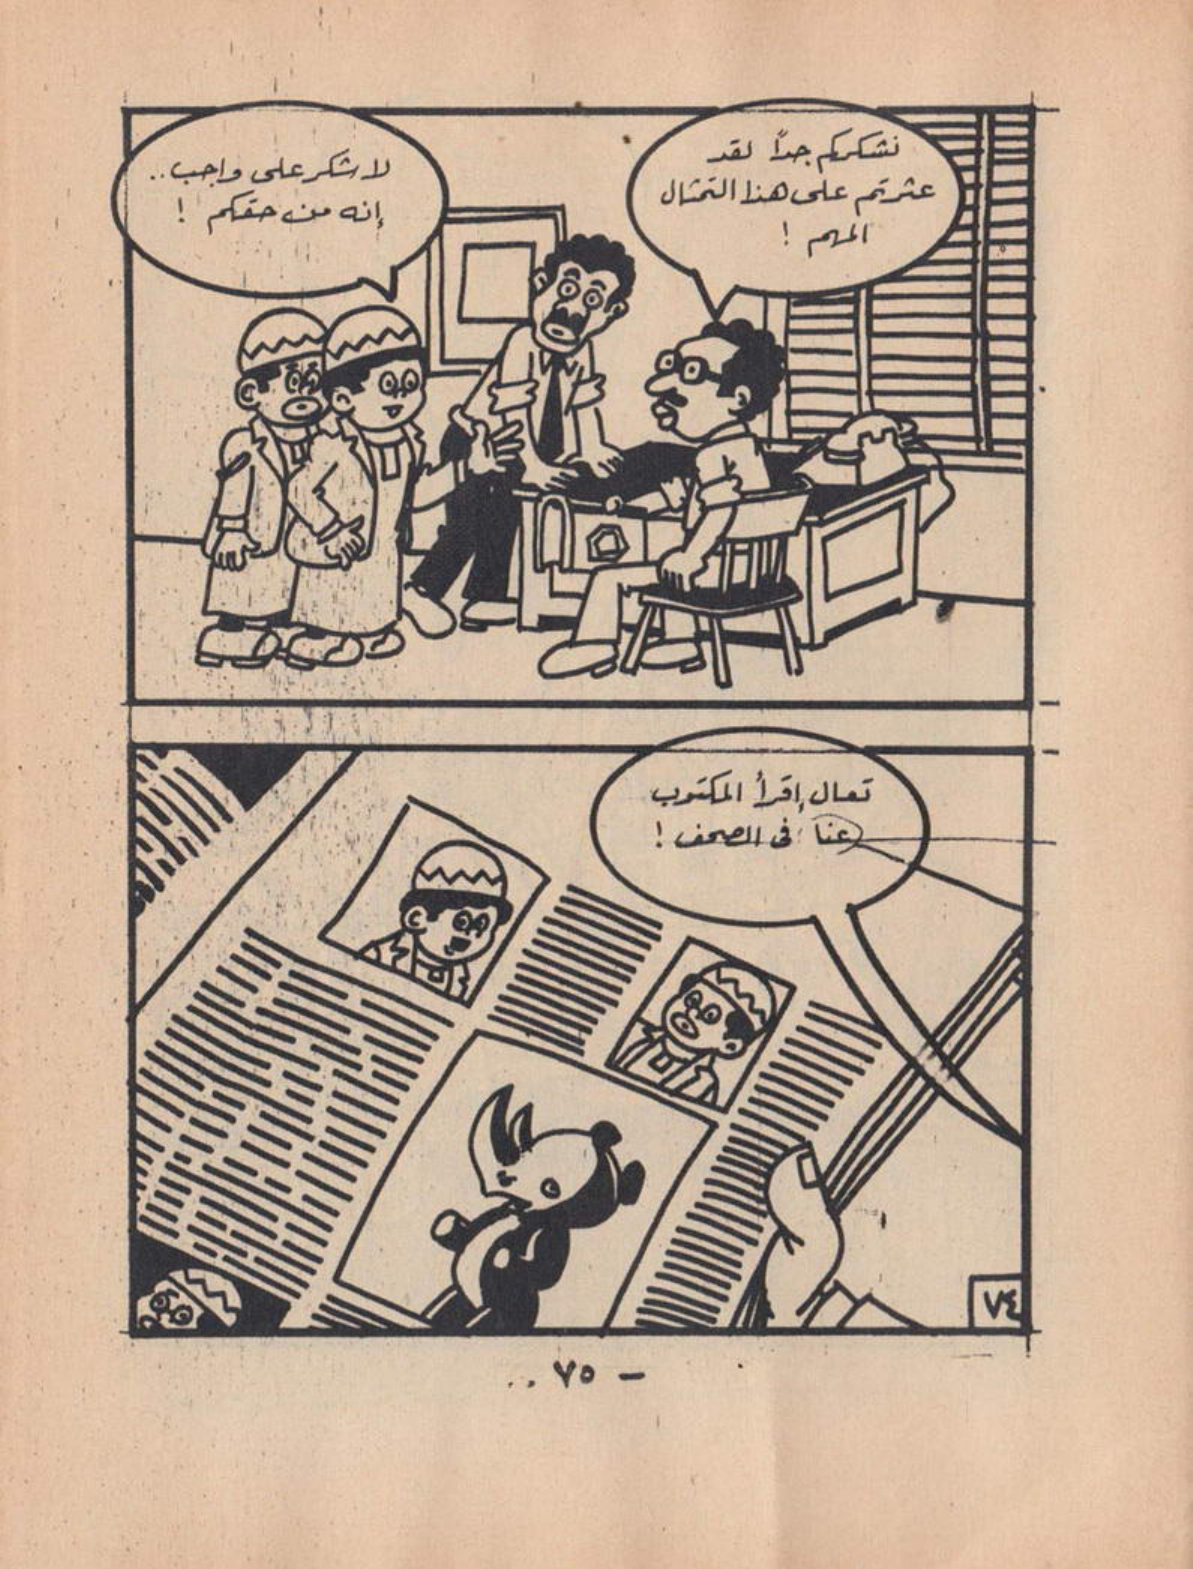 نشكركم جداً لقد
عثرتم على هذا التمثال
المهم !
لا شكر على واجب..
إنه من حقكم !
تعال إقرأ المكتوب
عنا فى الصحف !
٧٤
– ٧٥ ..